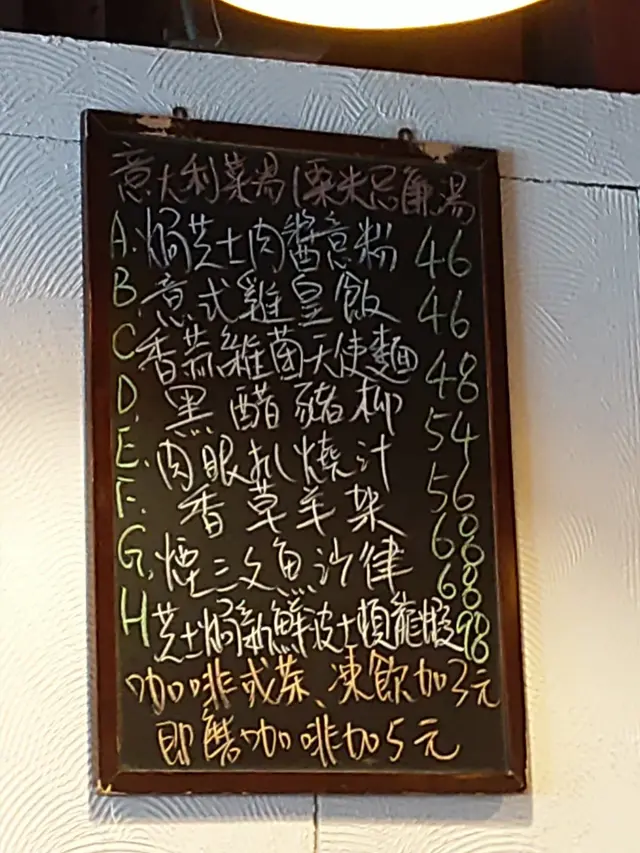 意大利菜湯 | 粟米忌廉湯
A. 焗芝士肉醬意粉 46
B. 意式雞皇飯 46
C 香蒜雜菌天使麵 48
D. 黑醋豬柳 54
E. 肉眼扒燒汁 56
F. 香草羊架 68
G. 煙三文魚沙律 68
H 芝士焗新鮮波士頓龍蝦 98
咖啡或茶、凍飲加3元
即磨咖啡加5元